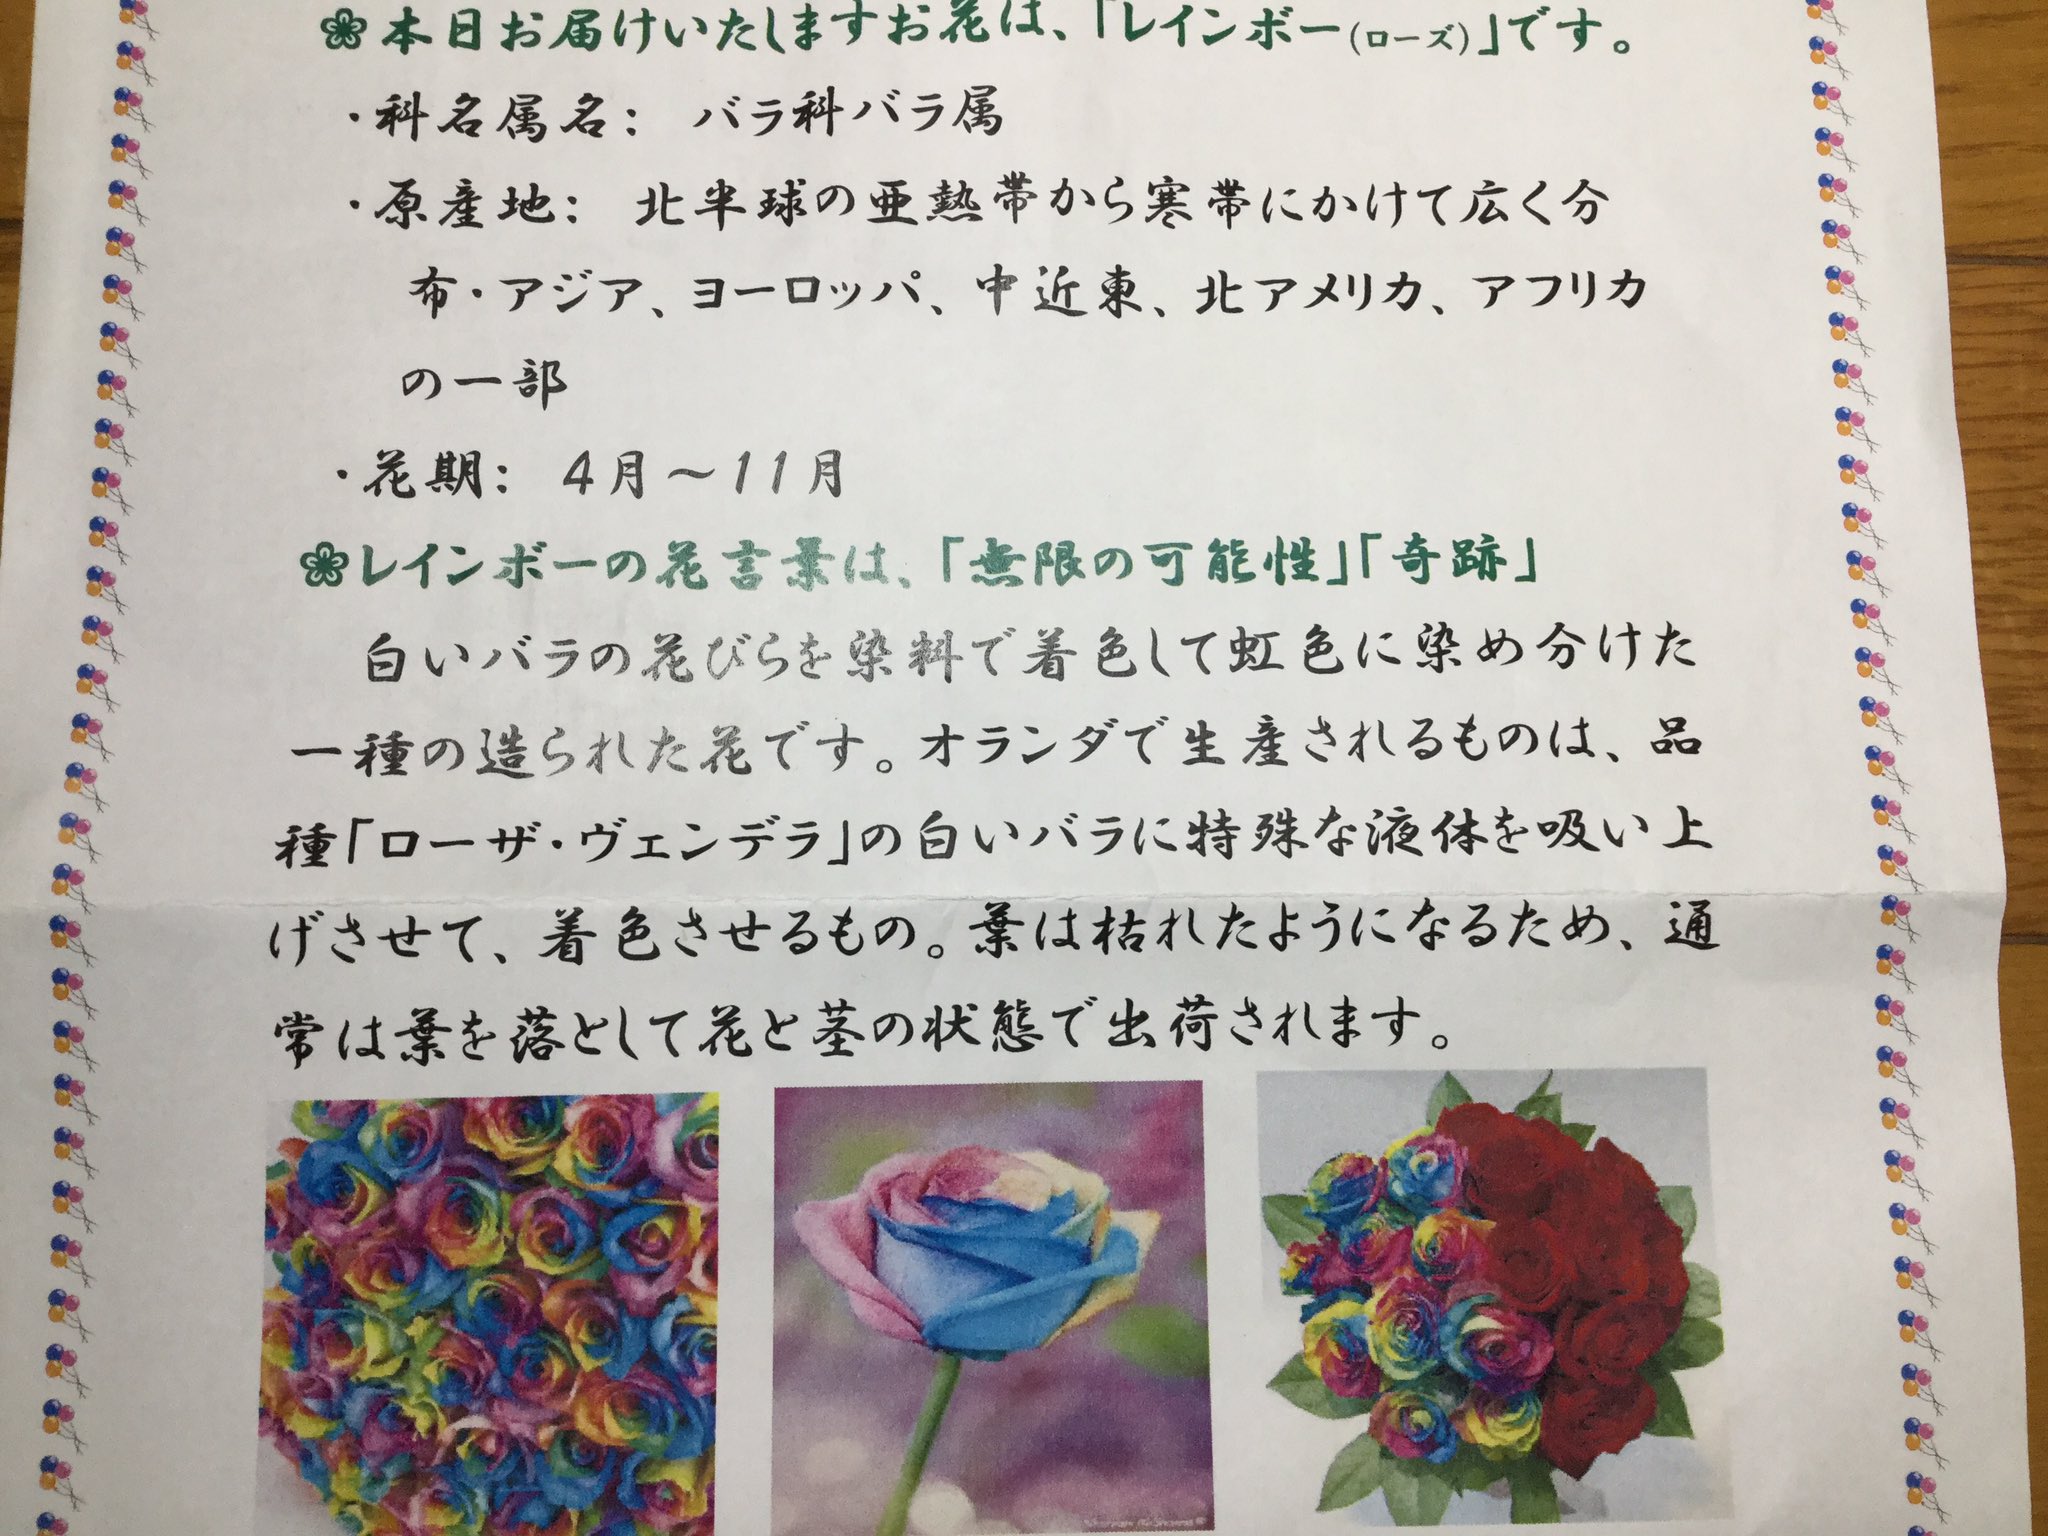 ❀本日お届けいたしますお花は、「レインボー(ローズ)」です。
・科名属名： バラ科バラ属
・原産地： 北半球の亜熱帯から寒帯にかけて広く分
布・アジア、ヨーロッパ、中近東、北アメリカ、アフリカ
の一部
・花期： 4月～11月
❀レインボーの花言葉は、「無限の可能性」「奇跡」
白いバラの花びらを染料で着色して虹色に染め分けた
一種の造られた花です。オランダで生産されるものは、品
種「ローザ・ヴェンデラ」の白いバラに特殊な液体を吸い上
げさせて、着色させるもの。葉は枯れたようになるため、通
常は葉を落として花と茎の状態で出荷されます。